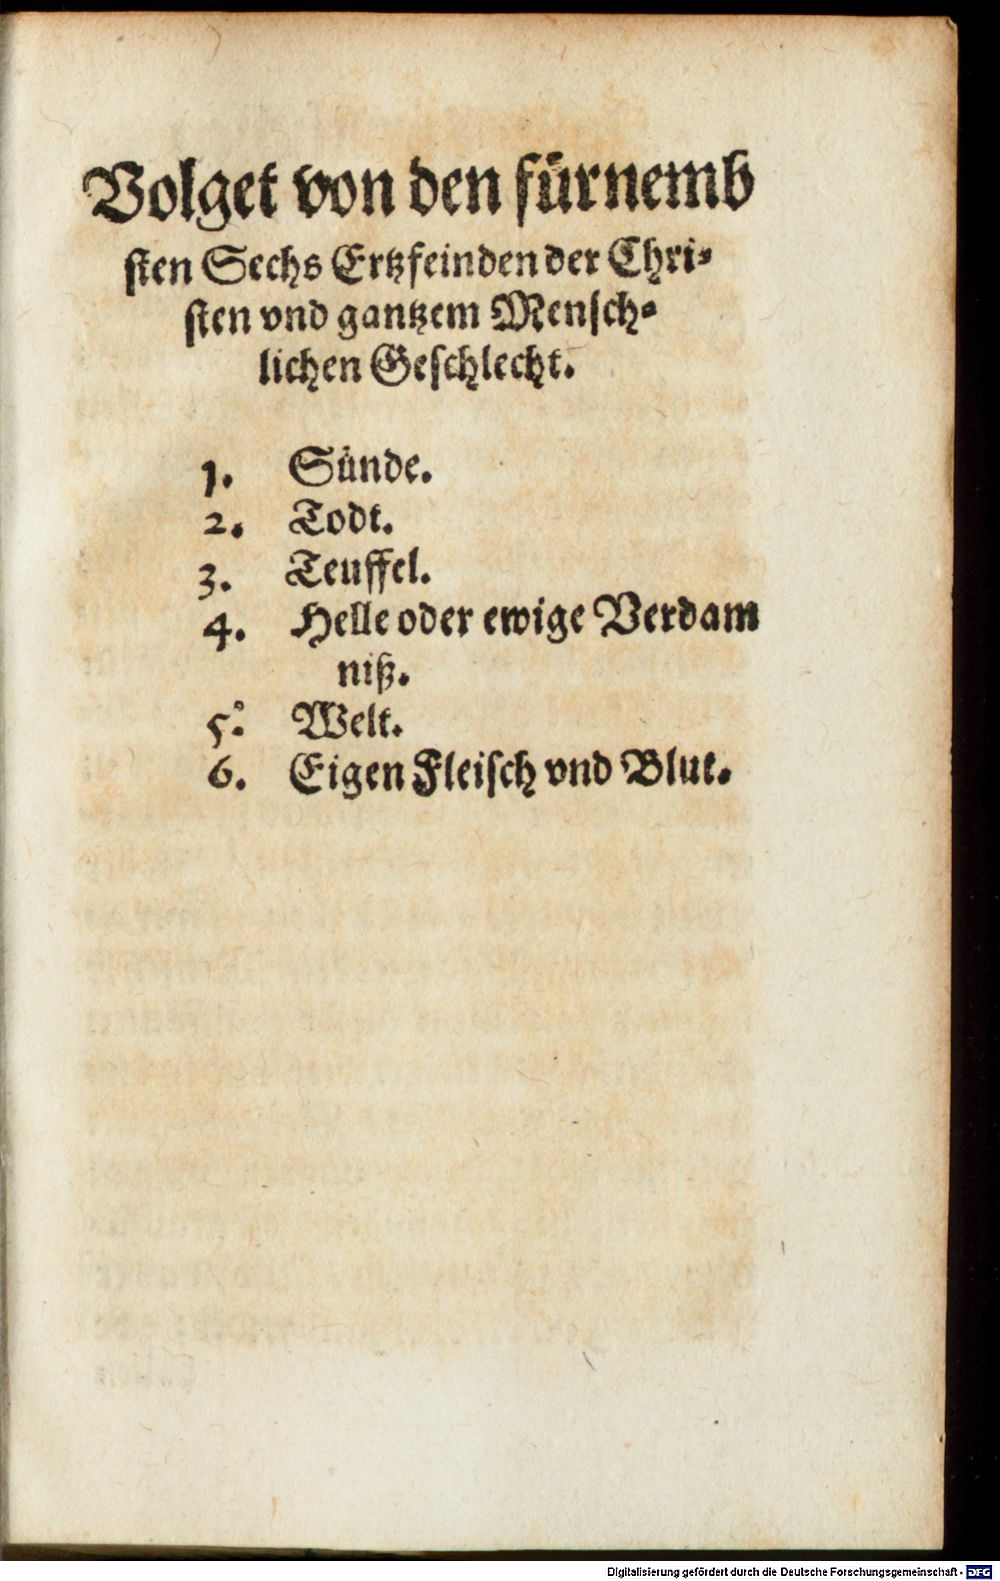 Volget von den fürnemb
sten Sechs Ertzfeinden der Chri-
sten vnd gantzem Mensch-
lichen Geschlecht.
1. Sünde.
2. Todt.
3. Teuffel.
4. Helle oder ewige Verdam
niß.
5. Welt.
6. Eigen Fleisch vnd Blut.
Digitalisierung gefördert durch die Deutsche Forschungsgemeinschaft - DFG